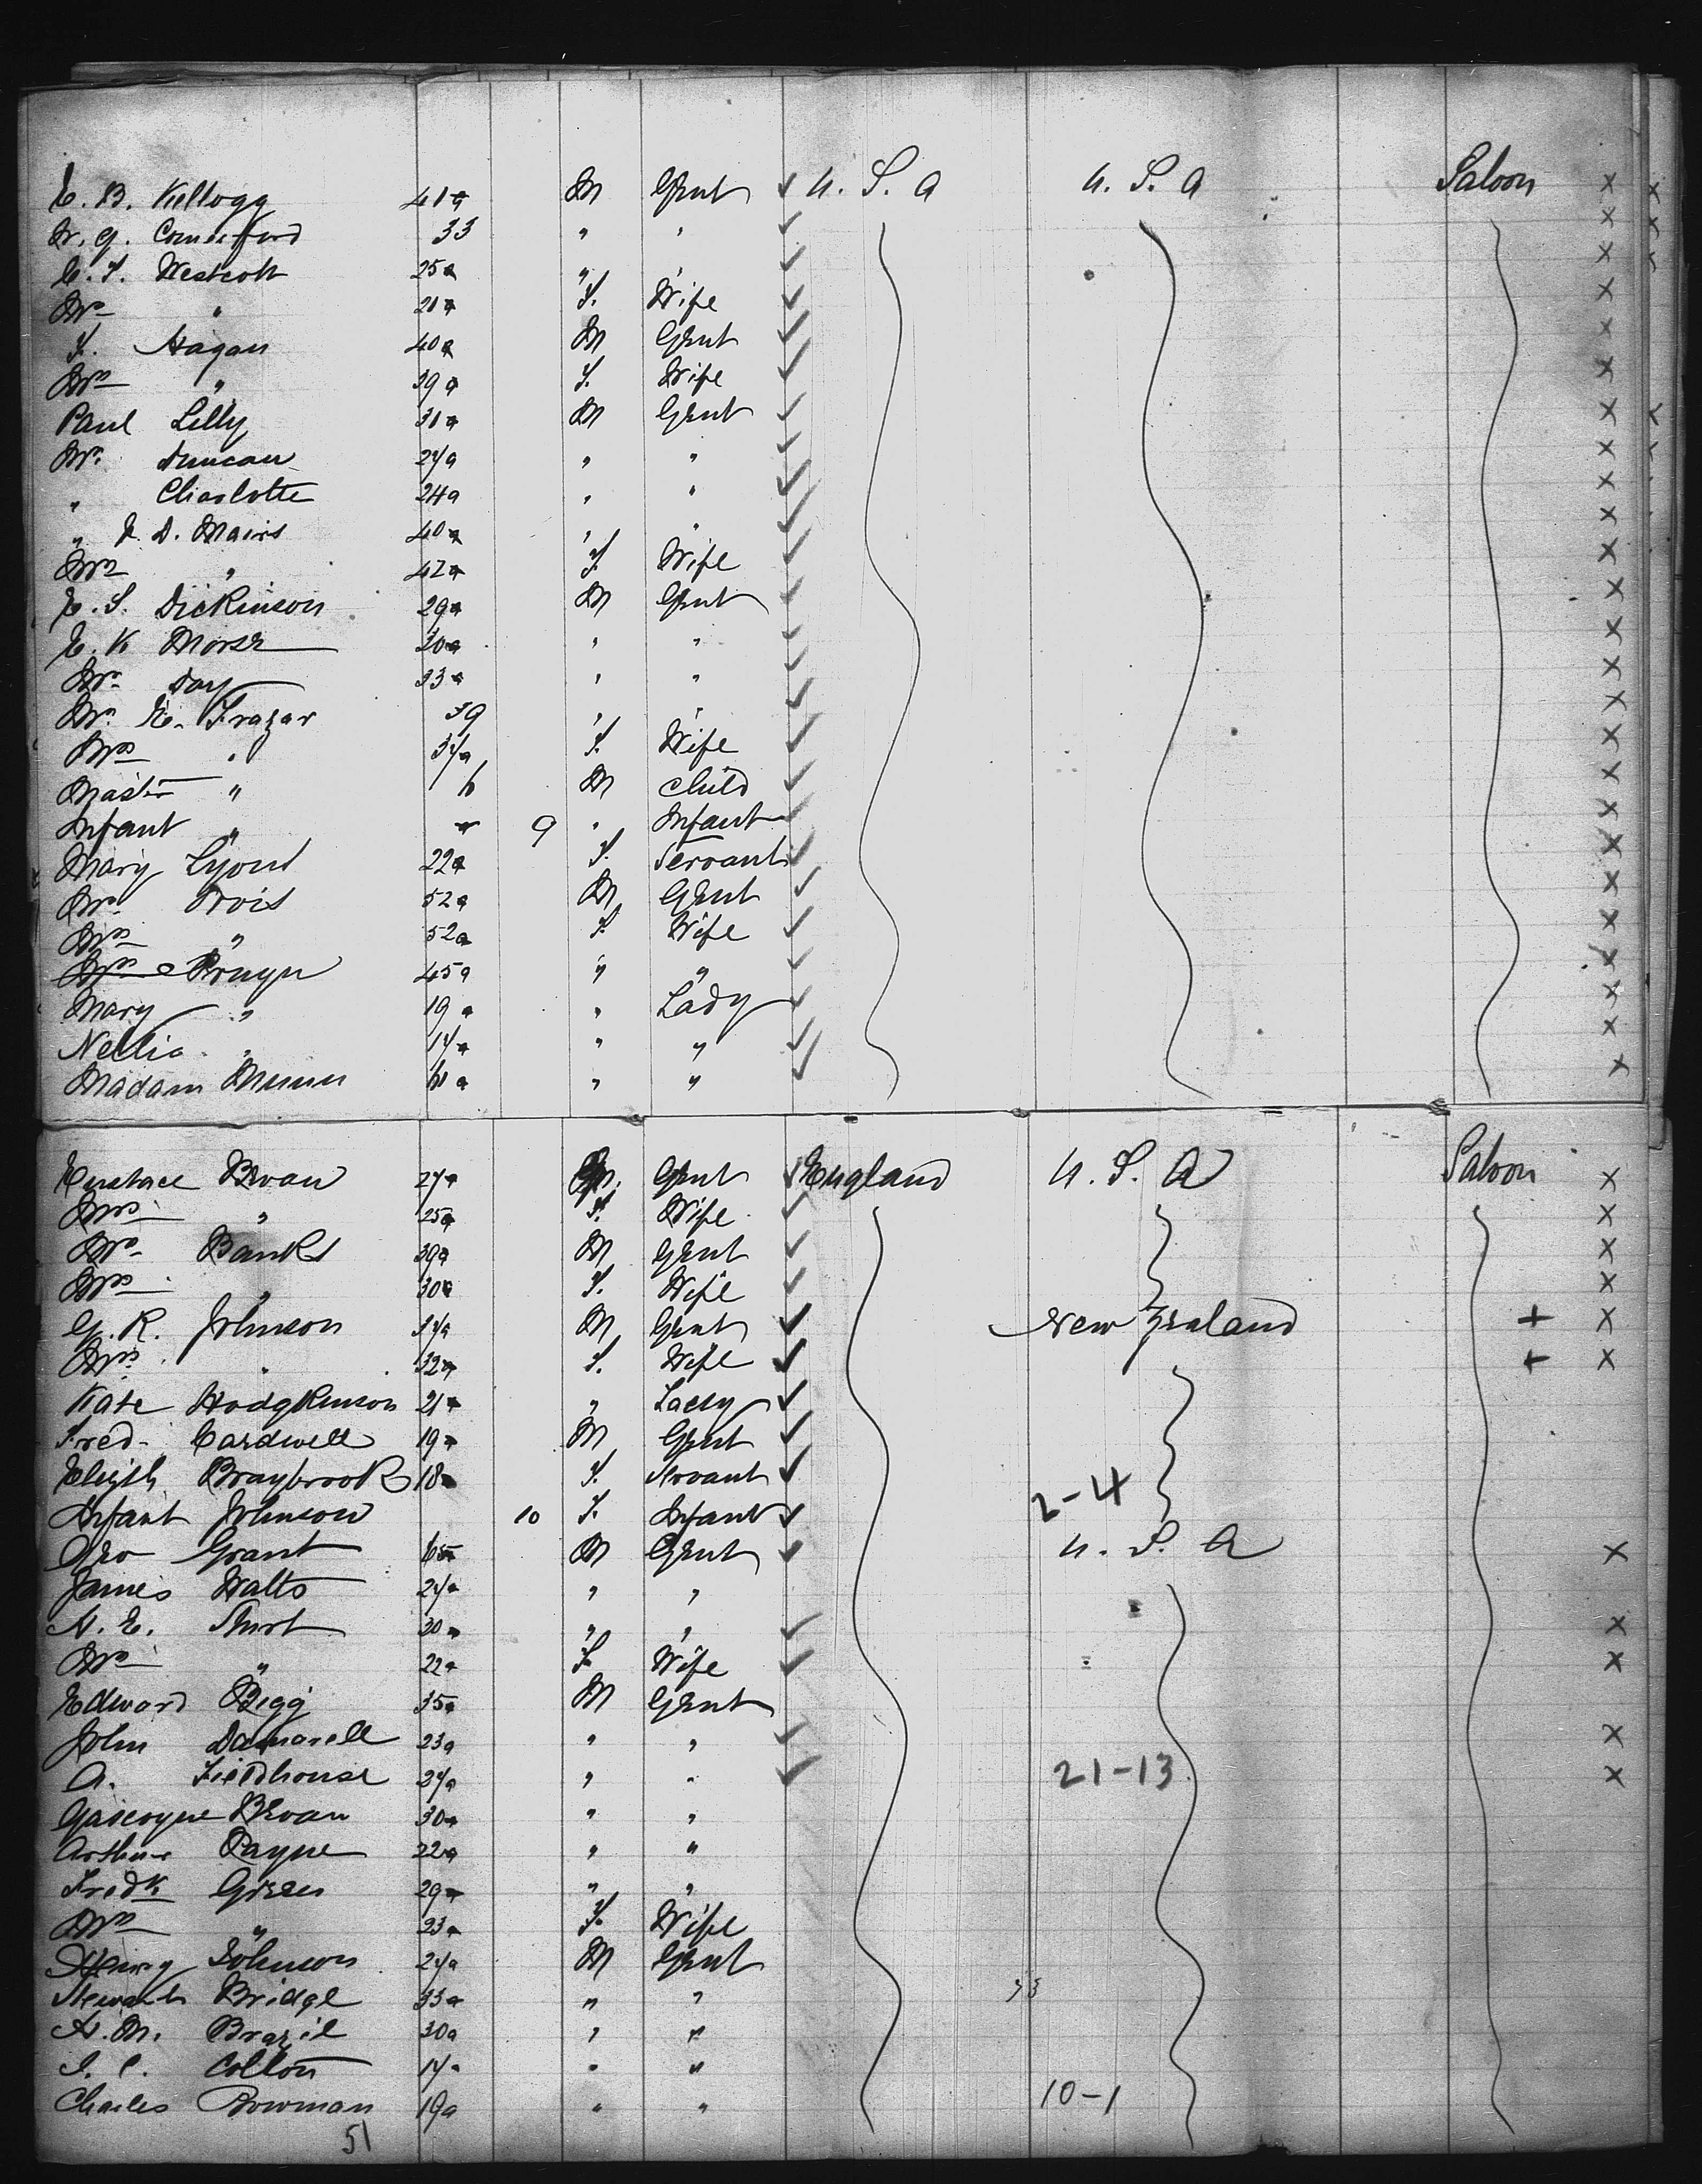 E. B. Kellogg 41a M Gent ✓ U. S. A U. S. A Saloon x x
W. G. Comerford 33 " " ✓ x x
C. F. Westcott 25a " ✓ x
Mrs " 21a F. Wife ✓ x
F. Hagan 40a M Gent ✓ x
Mrs " 39a F. Wife ✓ x
Paul Lilly 31a M Gent ✓ x
Mr. Duncan 24a " " ✓ x
" Charlotte 24a " " ✓ x
" E. D. Mairs 40a " " ✓ x
Mrs " 42a F. Wife ✓ x
E. S. Dickinson 29a M Gent ✓ x
E. K Morse 30a " " ✓ x
Mr. Day 33a " " ✓ x
Mr. E. Frazar 39 " " ✓ x
Mrs " 34a F. Wife ✓ x
Master " 6 M Child ✓ x
Infant " 9 " Infant ✓ x
Mary Lyons 22a F. Servant ✓ x
Mr. Orvis 52a M Gent ✓ x
Mrs " 52a F. Wife ✓ x
Mrs Pruyn 45a " " ✓ x
Mary " 19a " Lady ✓ x
Nellie " 17a " " ✓ x
Madam Munn 61a " " ✓ x
Eustace Bevan 27a M. Gent ✓ England U. S. A Saloon x
Mrs " 25a F. Wife ✓ x
Mr. Banks 39a M Gent ✓ x
Mrs " 30a F. Wife ✓ x
G. R. Johnson 34a M Gent ✓ New Zealand + x
Mrs " 32a F. Wife ✓ + x
Kate Hodgkinson 21a " Lady ✓
Fred. Cardwell 19a M Gent ✓
Braybrook 18a F. Servant ✓ 2-4
Infant Johnson 10 F. Infant ✓
Geo Grant 65a M Gent ✓ U. S. A x
James Watts 24a " "
A. E. Shurt 30a " " ✓ x
Mrs " 22a F. Wife ✓ x
Edward Begg 35a M Gent
John Damarell 23a " " ✓ x
A. Fieldhouse 24a " " ✓ 21-13 x
Gascoyne Bevan 30a " "
Arthur Payne 22a " "
Fredk. Green 29a " "
Mrs " 23a F. Wife
Henry Johnson 24a M Gent
Stewart Bridge 33a " "
A. M. Brazil 30a " "
J. C. Colton 17a " "
Charles Bowman 19a " " 10-1
51